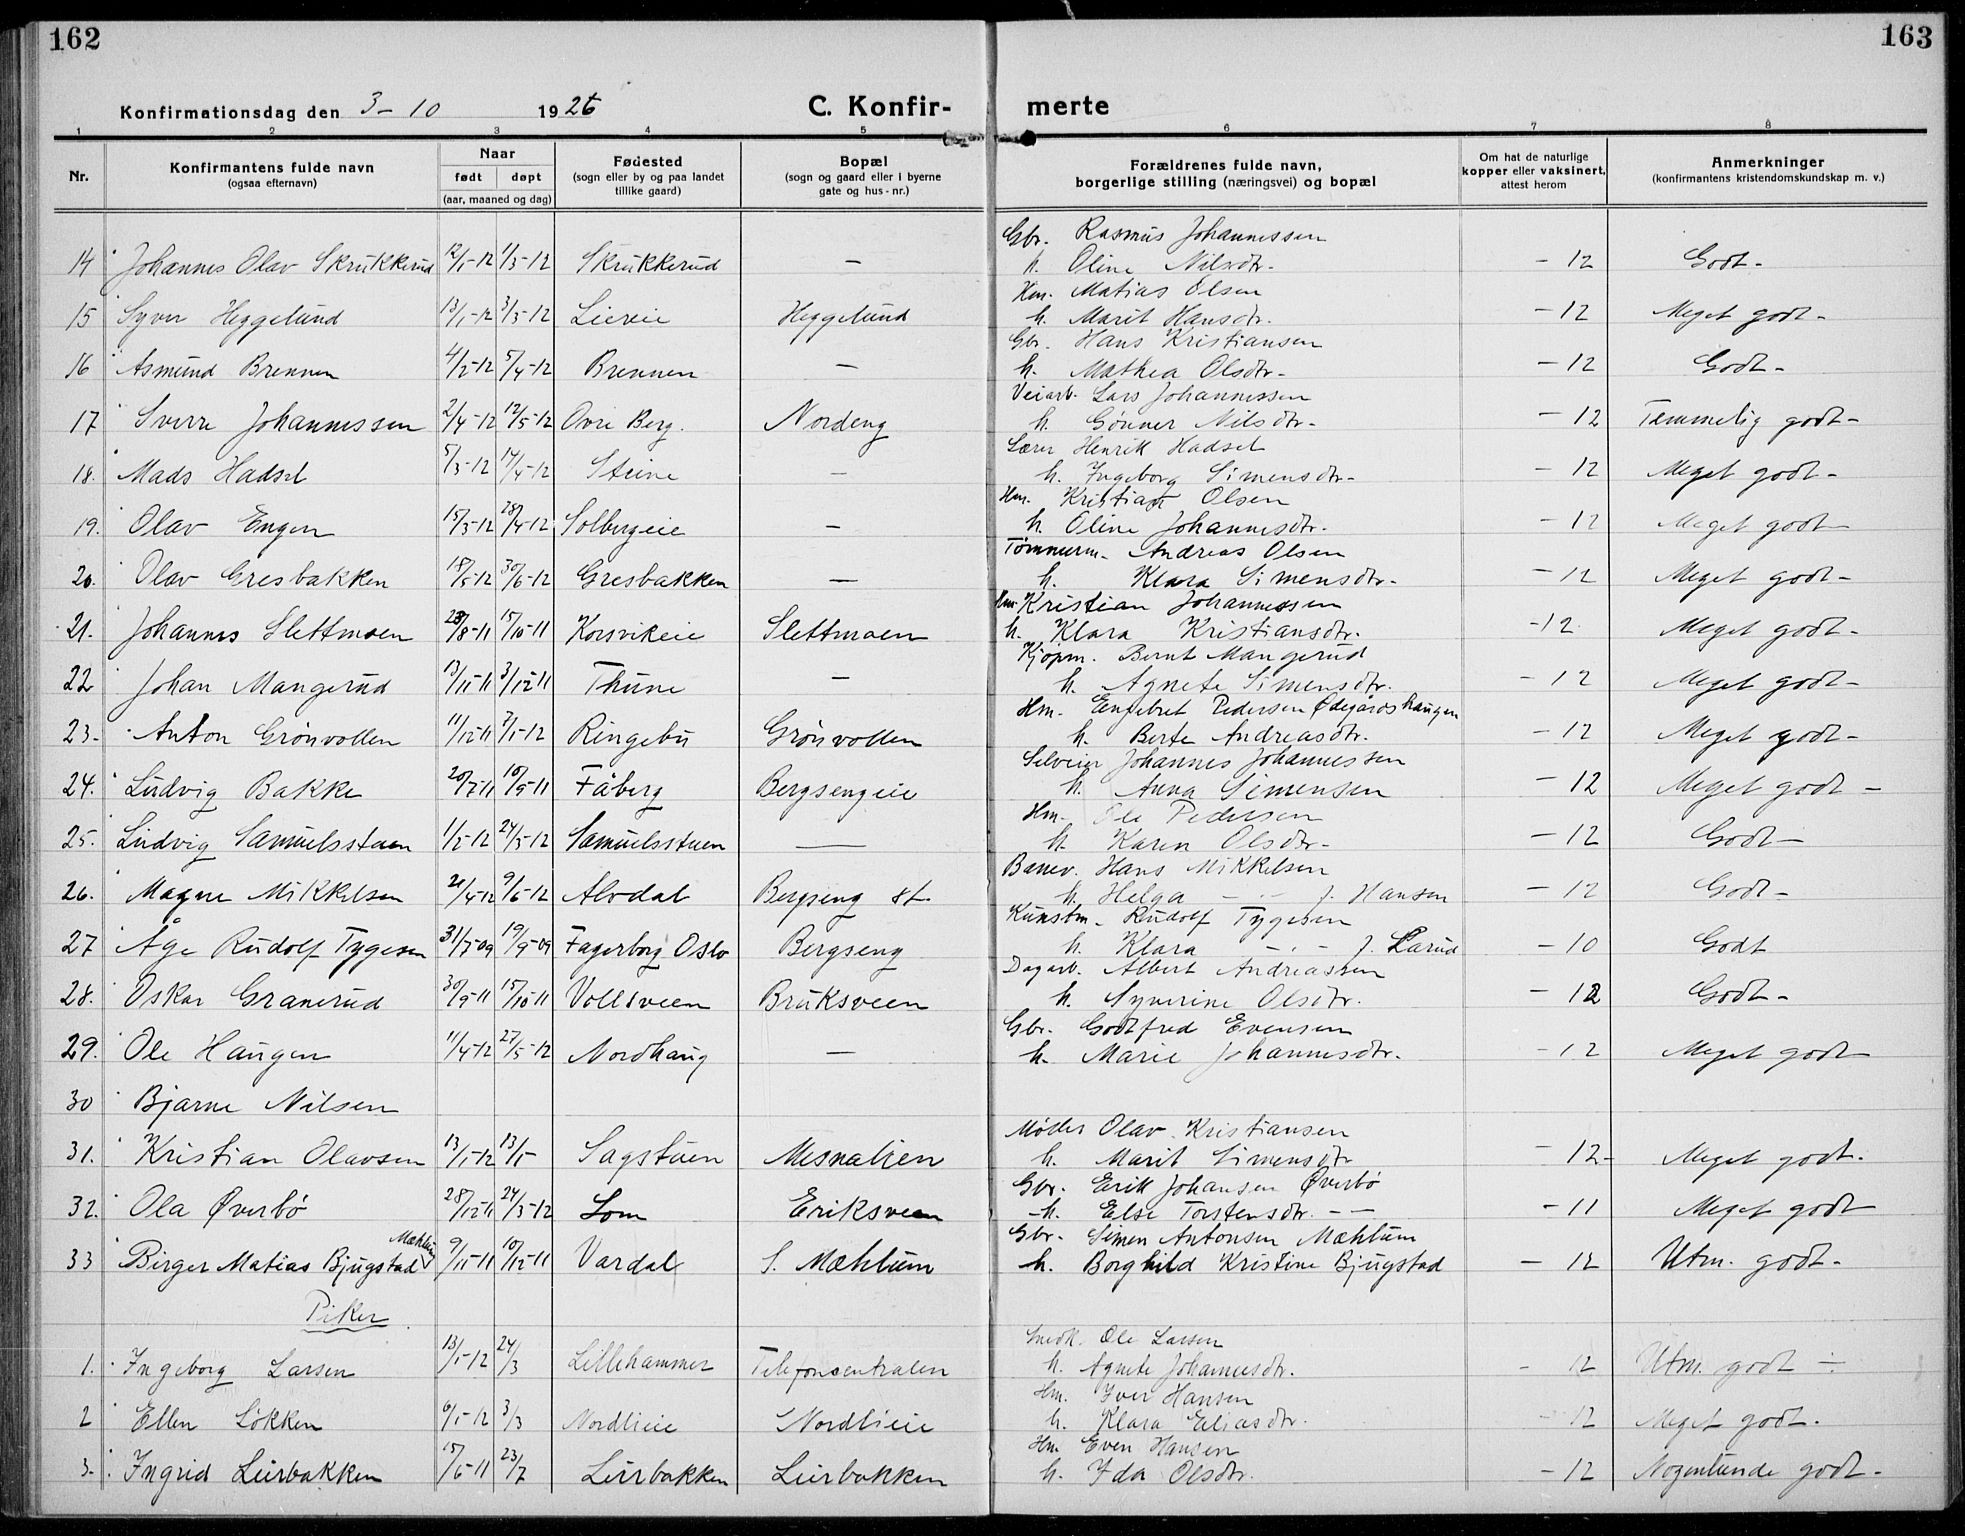 162
163
Konfirmationsdag den 3-10 1926
C. Konfir-
merte
1 2 3 4 5 6 7 8
Nr.
Konfirmantens fulde navn
(ogsaa efternavn)
Naar
født døpt
(aar, maaned og dag)
Fødested
(sogn eller by og paa landet
tillike gaard)
Bopæl
(sogn og gaard eller i byerne
gate og hus-nr.)
Forældrenes fulde navn,
borgerlige stilling (næringsvei) og bopæl
Om hat de naturlige
kopper eller vaksinert,
attest herom
Anmerkninger
(konfirmantens kristendomskundskap m. v.)
Gbr. Rasmus Johannessen
14 Johannes Olav Skrukkerud 12/1-12 1/3-12 Skrukkerud — h. Oline Nilsdtr. -12 Godt-
Hm. Matias Olsen
15 Syver Heggelund 13/1-12 3/3-12 Lieeie Heggelund h. Marit Hansdtr. -12 Meget godt-
Gbr. Hans Kristiansen
16 Asmund Brennen 4/2-12 5/4-12 Brennen — h. Mathea Olsdtr- -12 Godt-
Veiarb. Lars Johannessen
17 Sverre Johannessen 2/4-12 12/5-12 Øvre Berg. Nordeng h. Gønner Nilsdtr- -12 Temmelig godt-
Lærer Henrik Hadsel
18. Mads Hadsel 5/3-12 14/4-12 Steine — h. Ingeborg Simensdtr- -12 Meget godt-
Hm. Kristian Olsen
19. Olav Engen 15/3-12 28/4-12 Solbergeie — h. Oline Johannesdtr. -12 Meget godt-
Tømmerm- Andreas Olsen
20. Olav Gresbakken 18/5-12 30/6-12 Gresbakken — h. Klara Simensdtr- -12 Meget godt-
Hm. Kristian Johannessen
21. Johannes Slettmoen 28/8-11 15/10-11 Korsvikeie Slettmoen h. Klara Kristiansdtr. -12 Meget godt-
Kjøpm. Bernt Mangerud
22 Johan Mangerud 13/11-11 3/12-11 Thune — h. Agnete Simensdtr. -12 Meget godt-
Hm- Engebret Pedersen Ødegårdshaugen
23- Anton Grønvollen 11/12-11 7/1-12 Ringebu Grønvollen h. Berte Andreasdtr. -12 Meget godt-
Selveier Johannes Johannessen
24. Ludvig Bakke 20/7-11 10/9-11 Fåberg Bergsengeie h. Anna Simensen -12 Meget godt-
Hm- Ole Pedersen
25. Ludvig Samuelsstuen 1/2-12 24/3-12 Samuelsstuen — h. Karen Olsdtr- -12 Godt-
Banev. Hans Mikkelsen
26. Magne Mikkelsen 21/4-12 9/6-12 Alvdal Bergseng st. h. Helga - " - f. Hansen -12 Godt-
Kunstm- Rudolf Tygesen
27 Åge Rudolf Tygesen 31/7-09 19/9-09 Fagerborg Oslo Bergseng h. Klara - " - f. Larud -10 Godt
Dagarb. Albert Andreassen
28. Oskar Granerud 30/9-11 15/10-11 Vollsveen Bruksveen h. Syverine Olsdtr. -12 Godt-
Gbr. Godtfred Evensen
29. Ole Haugen 11/4-12 27/5-12 Nordhaug — h. Marie Johannesdtr. -12 Meget godt-
30 Bjarne Nilsen
Møller Olav Kristiansen
31. Kristian Olavsen 13/1-12 13/5- Sagstuen Mesnalien h. Marit Simensdtr -12- Meget godt.
Gbr. Erik Johansen Øverbø
32. Ola Øverbø 28/12-11 24/3-12 Lom Eriksveen h. Else Torstensdtr. - - -11 Meget godt
Gbr- Simen Antonsen Mæhlum
33 Birger Matias Bjugstad Mæhlum 9/11-11 10/12-11 Vardal S. Mæhlum h. Borghild Kristine Bjugstad -12 Utm. godt-
Piker
Snedk. Ole Larsen
1. Ingeborg Larsen 13/1-12 24/3 Lillehammer Telefoncentralen h. Agnete Johannesdtr. -12 Utm. godt
Hm. Iver Hansen
2 Ellen Løkken 6/1-12 3/3 Nordlieie Nordlieie h. Klara Eliasdtr. -12 Meget godt.
Hm Even Hansen
3. Ingrid Leirbakken 15/6-11 23/7 Leirbakken Leirbakken h. Ida Olsdtr. -12 Nogenlunde godt-